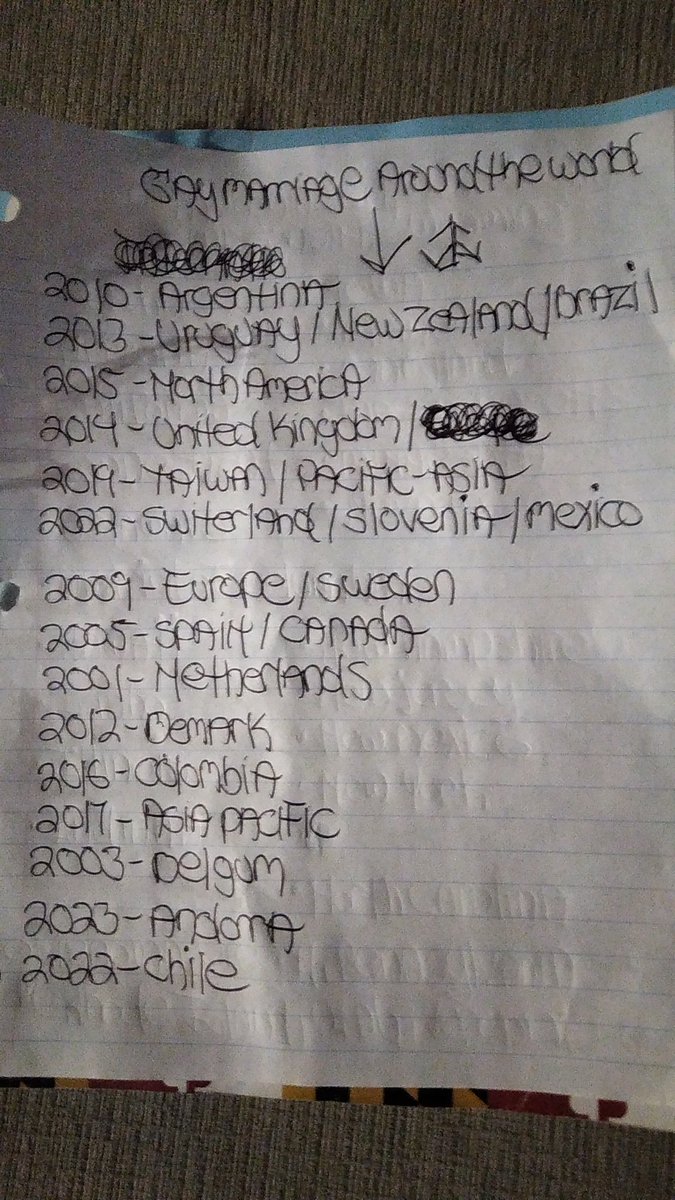 Gay marriage Around the world
2010 - Argentina
2013 - Uruguay / New Zealand / Brazil
2015 - North America
2014 - United Kingdom /
2019 - Taiwan / Pacific-Asia
2022 - Switerland / Slovenia / mexico
2009 - Europe / Sweden
2005 - Spain / Canada
2001 - Netherlands
2012 - Demark
2016 - Colombia
2017 - Asia Pacific
2003 - Belgum
2023 - Andorra
2022 - Chile